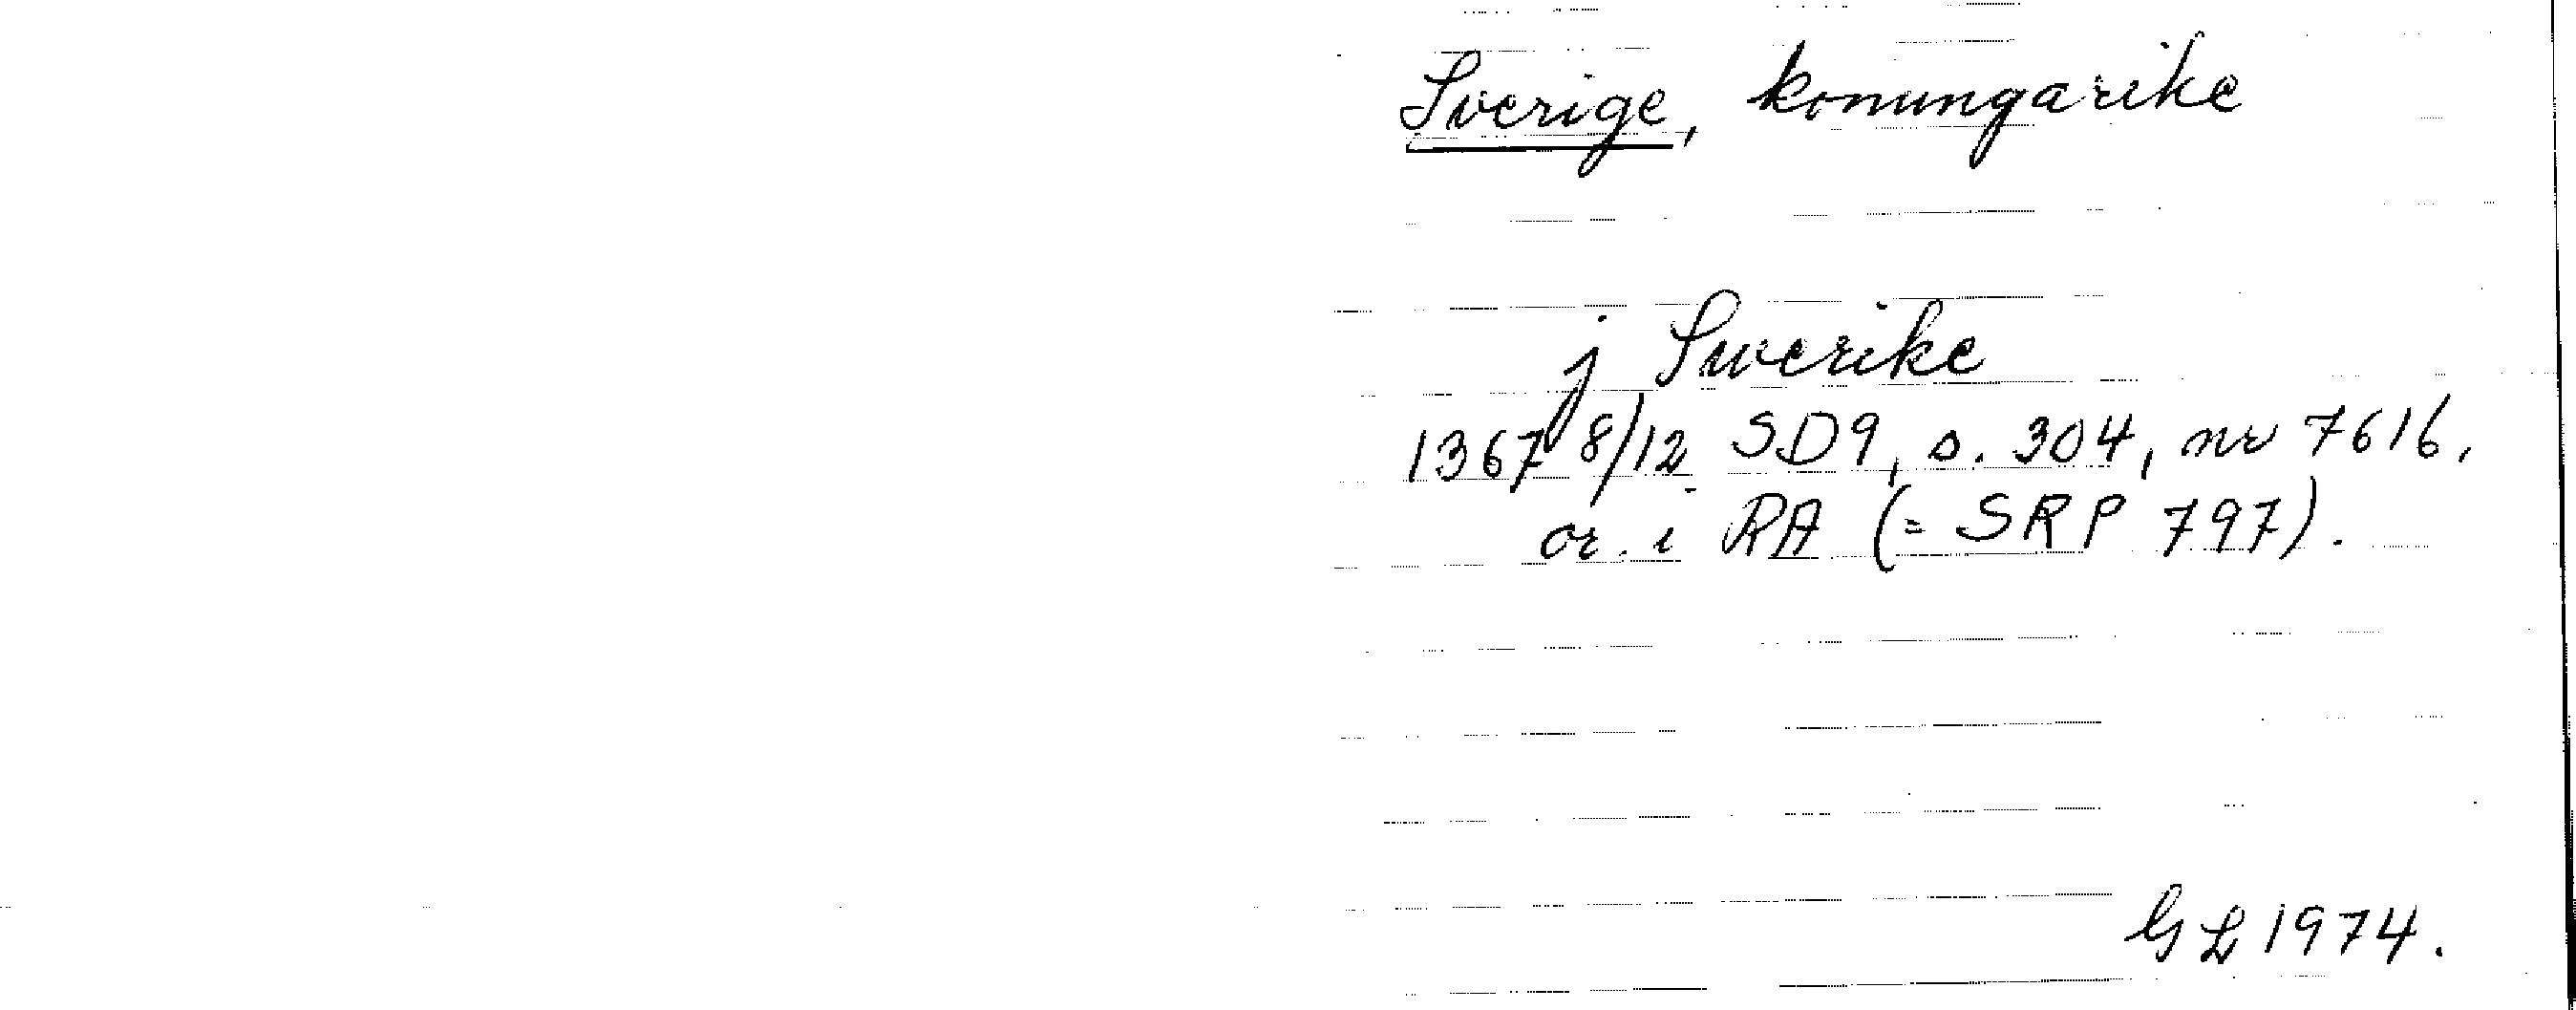 Sverige, konungarike
j Swerike
1367 8/12 SD9, s. 304, nr 7616,
or. i RA (= SRP 797).
GL 1974.